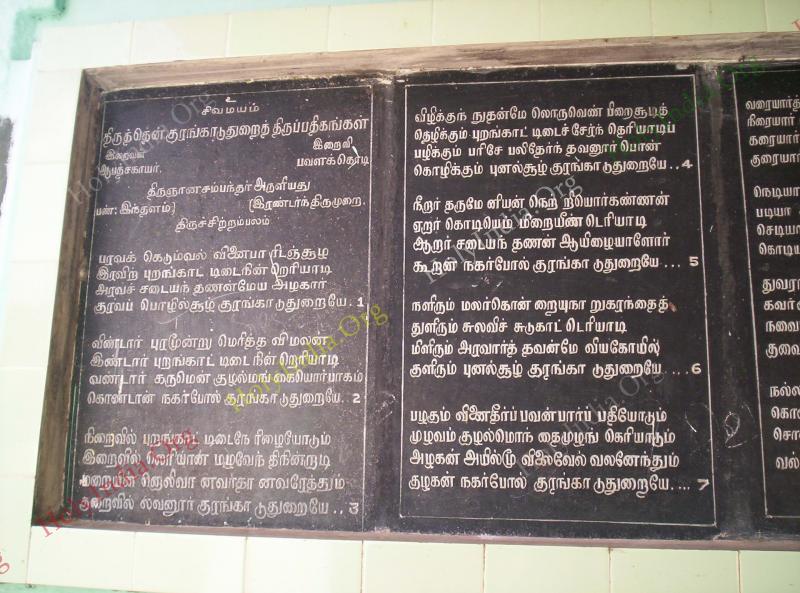 உ
சிவமயம்
திருத்தென் குரங்காடுதுறைத் திருப்பதிகங்கள்
இறைவன்
ஆபத்சகாயர்.
இறைவி
பவளக்கொடி
திருஞானசம்பந்தர் அருளியது
பண்: இந்தளம்] [இரண்டாந்திருமுறை.
திருச்சிற்றம்பலம்
பரவக் கெடும்வல் வினைபா ரிடஞ்சூழ
இரவிற் புறங்காட் டிடைநின் றெரியாடி
அரவச் சடையந் தணன்மேய அழகார்
குரவப் பொழில்சூழ் குரங்கா டுதுறையே. 1
விண்டார் புரமூன்று மெரித்த விமலன்
இண்டார் புறங்காட் டிடைநின் றெரியாடி
வண்டார் கருமென் குழல்மங் கையொர்பாகம்
கொண்டான் நகர்போல் குரங்கா டுதுறையே. 2
நிறைவில் புறங்காட் டிடைநே ரிழையோடும்
இறைவில் லெரியான் மழுவேந் திநின்றாடி
மறையின் னொலிவா னவர்தா னவரேத்தும்
குறைவில் லவனூர் குரங்கா டுதுறையே ... 3
விழிக்குந் நுதன்மே லொருவெண் பிறைசூடித்
தெழிக்கும் புறங்காட் டிடைச் சேர்ந் தெரியாடிப்
பழிக்கும் பரிசே பலிதேர்ந் தவனூர் பொன்
கொழிக்கும் புனல்சூழ் குரங்கா டுதுறையே ...4
நீறர் தருமே னியன் நெற் றியொர்கண்ணன்
ஏறர் கொடியெம் மிறையீண் டெரியாடி
ஆறர் சடையந் தணன் ஆயிழையாளோர்
கூறன் நகர்போல் குரங்கா டுதுறையே ... 5
நளிரும் மலர்கொன் றையுநா றுகரந்தைத்
துளிரும் சுலவிச் சுடுகாட் டெரியாடி
மிளிரும் அரவார்த் தவன்மே வியகோயில்
குளிரும் புனல்சூழ் குரங்கா டுதுறையே ... 6
பழகும் வினைதீர்ப் பவன்பார்ப் பதியோடும்
முழவம் குழல்மொந் தைமுழங் கெரியாடும்
அழகன் அயில்மூ விலைவேல் வலனேந்தும்
குழகன் நகர்போல் குரங்கா டுதுறையே.... 7
வரையார்த்
நிரையார்
கரையார்
குரையார்
நெடியா
படியா
செடியா
கொடிய
துவரா
கவர்
நவை
குவை
நல்ல
கொ
சொ
வல்
HolyIndia.Org
HolyIndia.Org
HolyIndia.Org
HolyIndia.Org
HolyIndia.Org
HolyIndia.Org
HolyIndia.Org
HolyIndia.Org